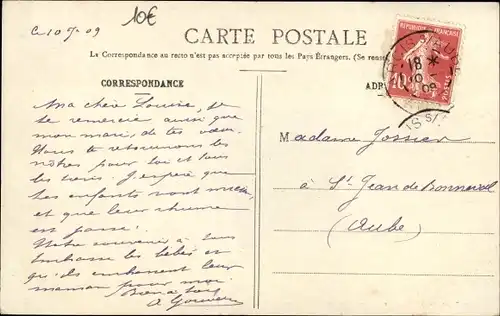 Ce 10 7 09
10€
CARTE POSTALE
La Correspondance au recto n'est pas acceptée par tous les Pays Étrangers. (Se rense
CORRESPONDANCE
ADR
RÉPUBLIQUE FRANÇAISE
10
POSTES
18 *
10
09
AUBE
Ma chère Louise, je
te remercie ainsi que
mon mari, de tes vœux.
Nous te retournons les
nôtres pour toi et tous
les tiens. J'espère que
les enfants vont mieux
et que leur rhume
est passé.
Notre souvenir à tous
Embrasse les bébés et
qu'ils embrassent leur
maman pour moi.
Bien à tous
A.
Madame Jossier
à St Jean de Bonneval
(Aube)